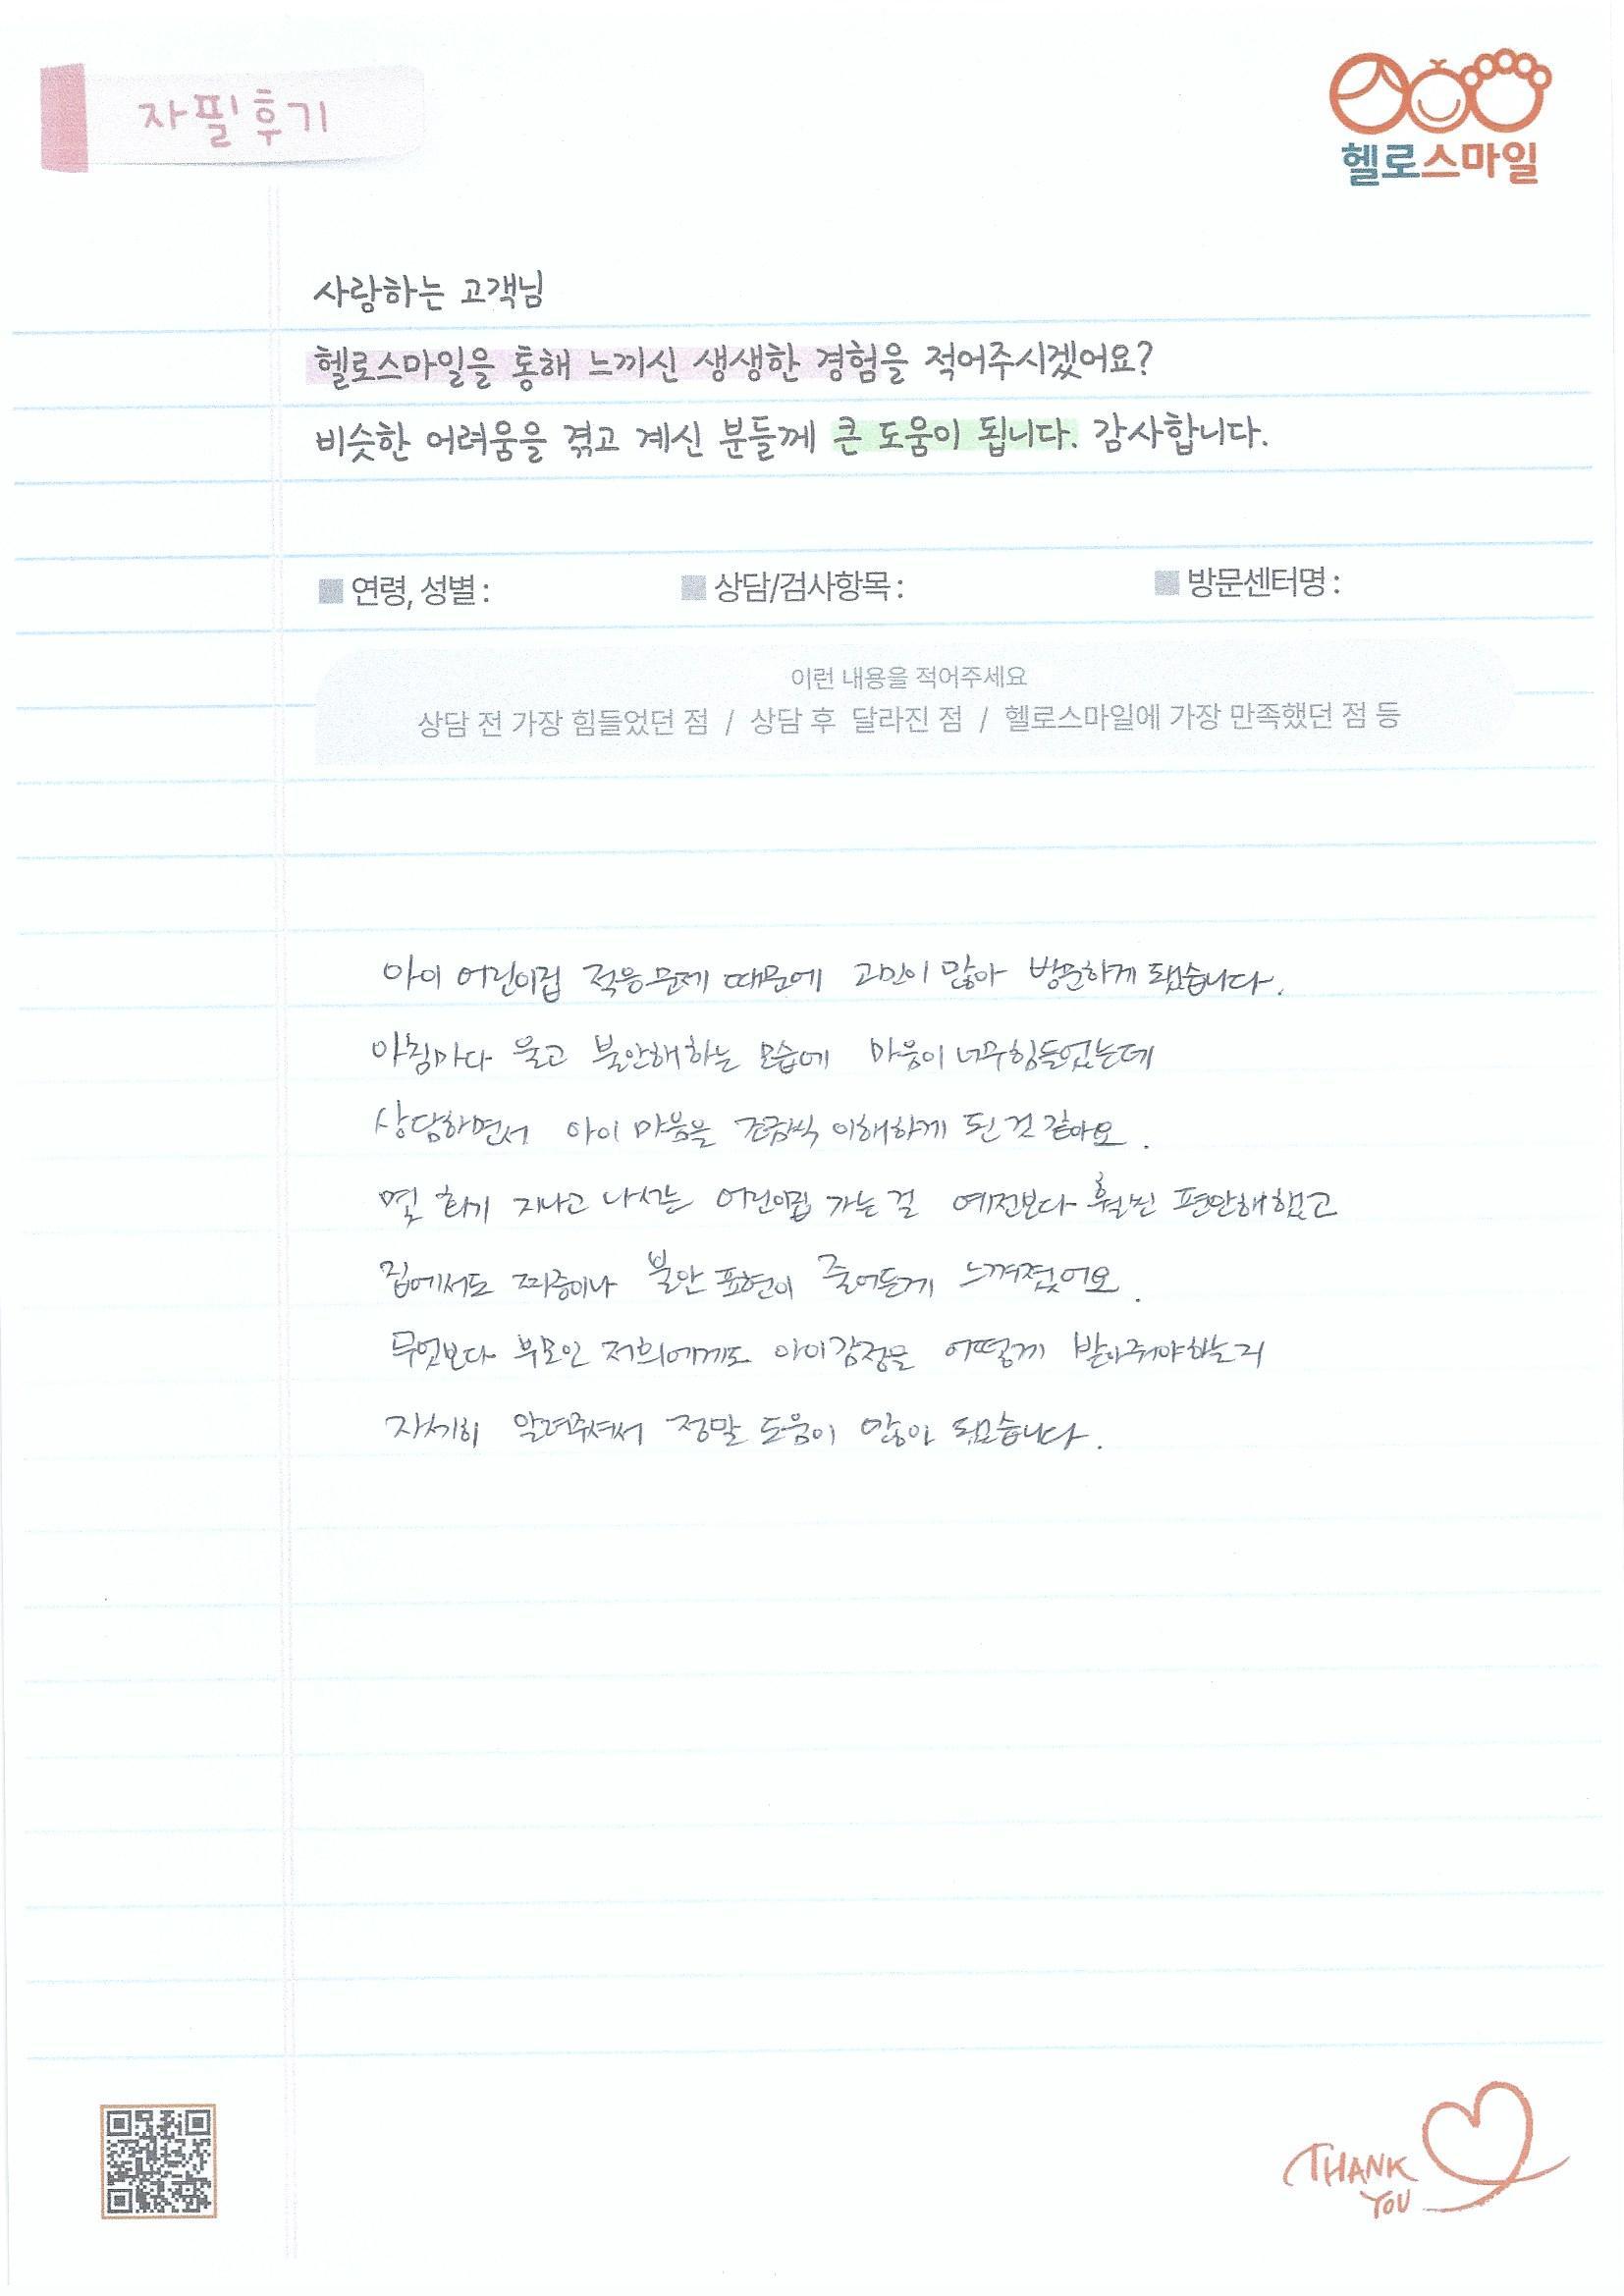 자필후기
헬로스마일
사랑하는 고객님
헬로스마일을 통해 느끼신 생생한 경험을 적어주시겠어요?
비슷한 어려움을 겪고 계신 분들께 큰 도움이 됩니다. 감사합니다.
■ 연령, 성별 : ■ 상담/검사항목 : ■ 방문센터명 :
이런 내용을 적어주세요
상담 전 가장 힘들었던 점 / 상담 후 달라진 점 / 헬로스마일에 가장 만족했던 점 등
아이 어린이집 적응문제 때문에 고민이 많아 방문하게 됐습니다.
아침마다 울고 불안해하는 모습에 마음이 너무힘들었는데
상담하면서 아이 마음을 조금씩 이해하게 된 것 같아요.
몇 회기 지나고 나서는 어린이집 가는 걸 예전보다 훨씬 편안해했고
집에서도 짜증이나 불안 표현이 줄어든게 느껴졌어요.
무엇보다 부모인 저희에게도 아이감정을 어떻게 받아줘야하는지
자세히 알려주셔서 정말 도움이 많이 되었습니다.
THANK
YOU